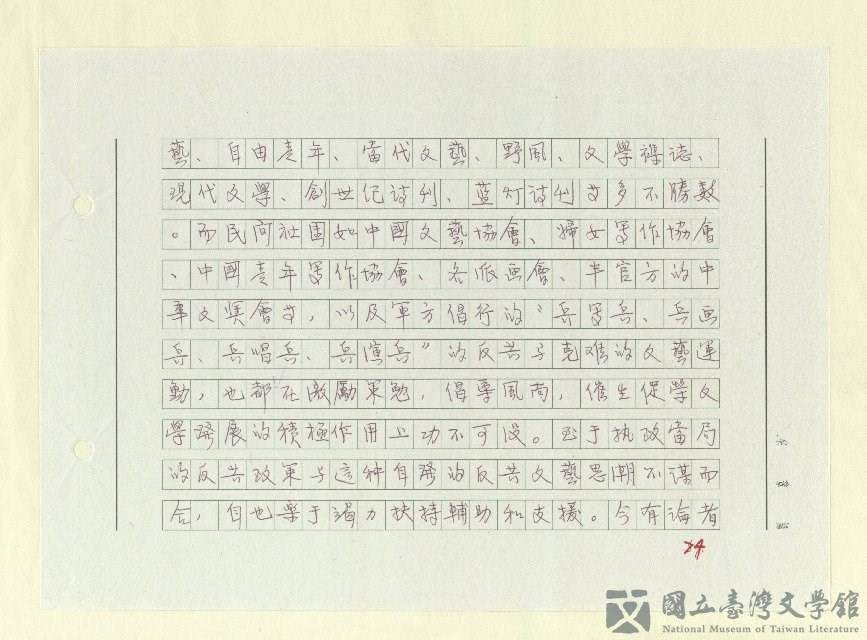 藝、自由青年、當代文藝、野風、文學雜誌、
現代文學、創世紀詩刊、蓝灯詩刊等多不勝數
。而民间社团如中國文藝協會、婦女写作協會
、中國青年写作協會、各派画會、半官方的中
華文獎會等，以及軍方倡行的“兵写兵、兵画
兵、兵唱兵、兵演兵”的反共与克难的文藝運
動，也都在激勵策勉，倡導風尚，催生促學文
學發展的積極作用上功不可没。至于执政當局
的反共政策与這种自發的反共文藝思潮不谋而
合，自也樂于竭力扶持輔助和支援。今有論者
24.
國立臺灣文學館
National Museum of Taiwan Literature